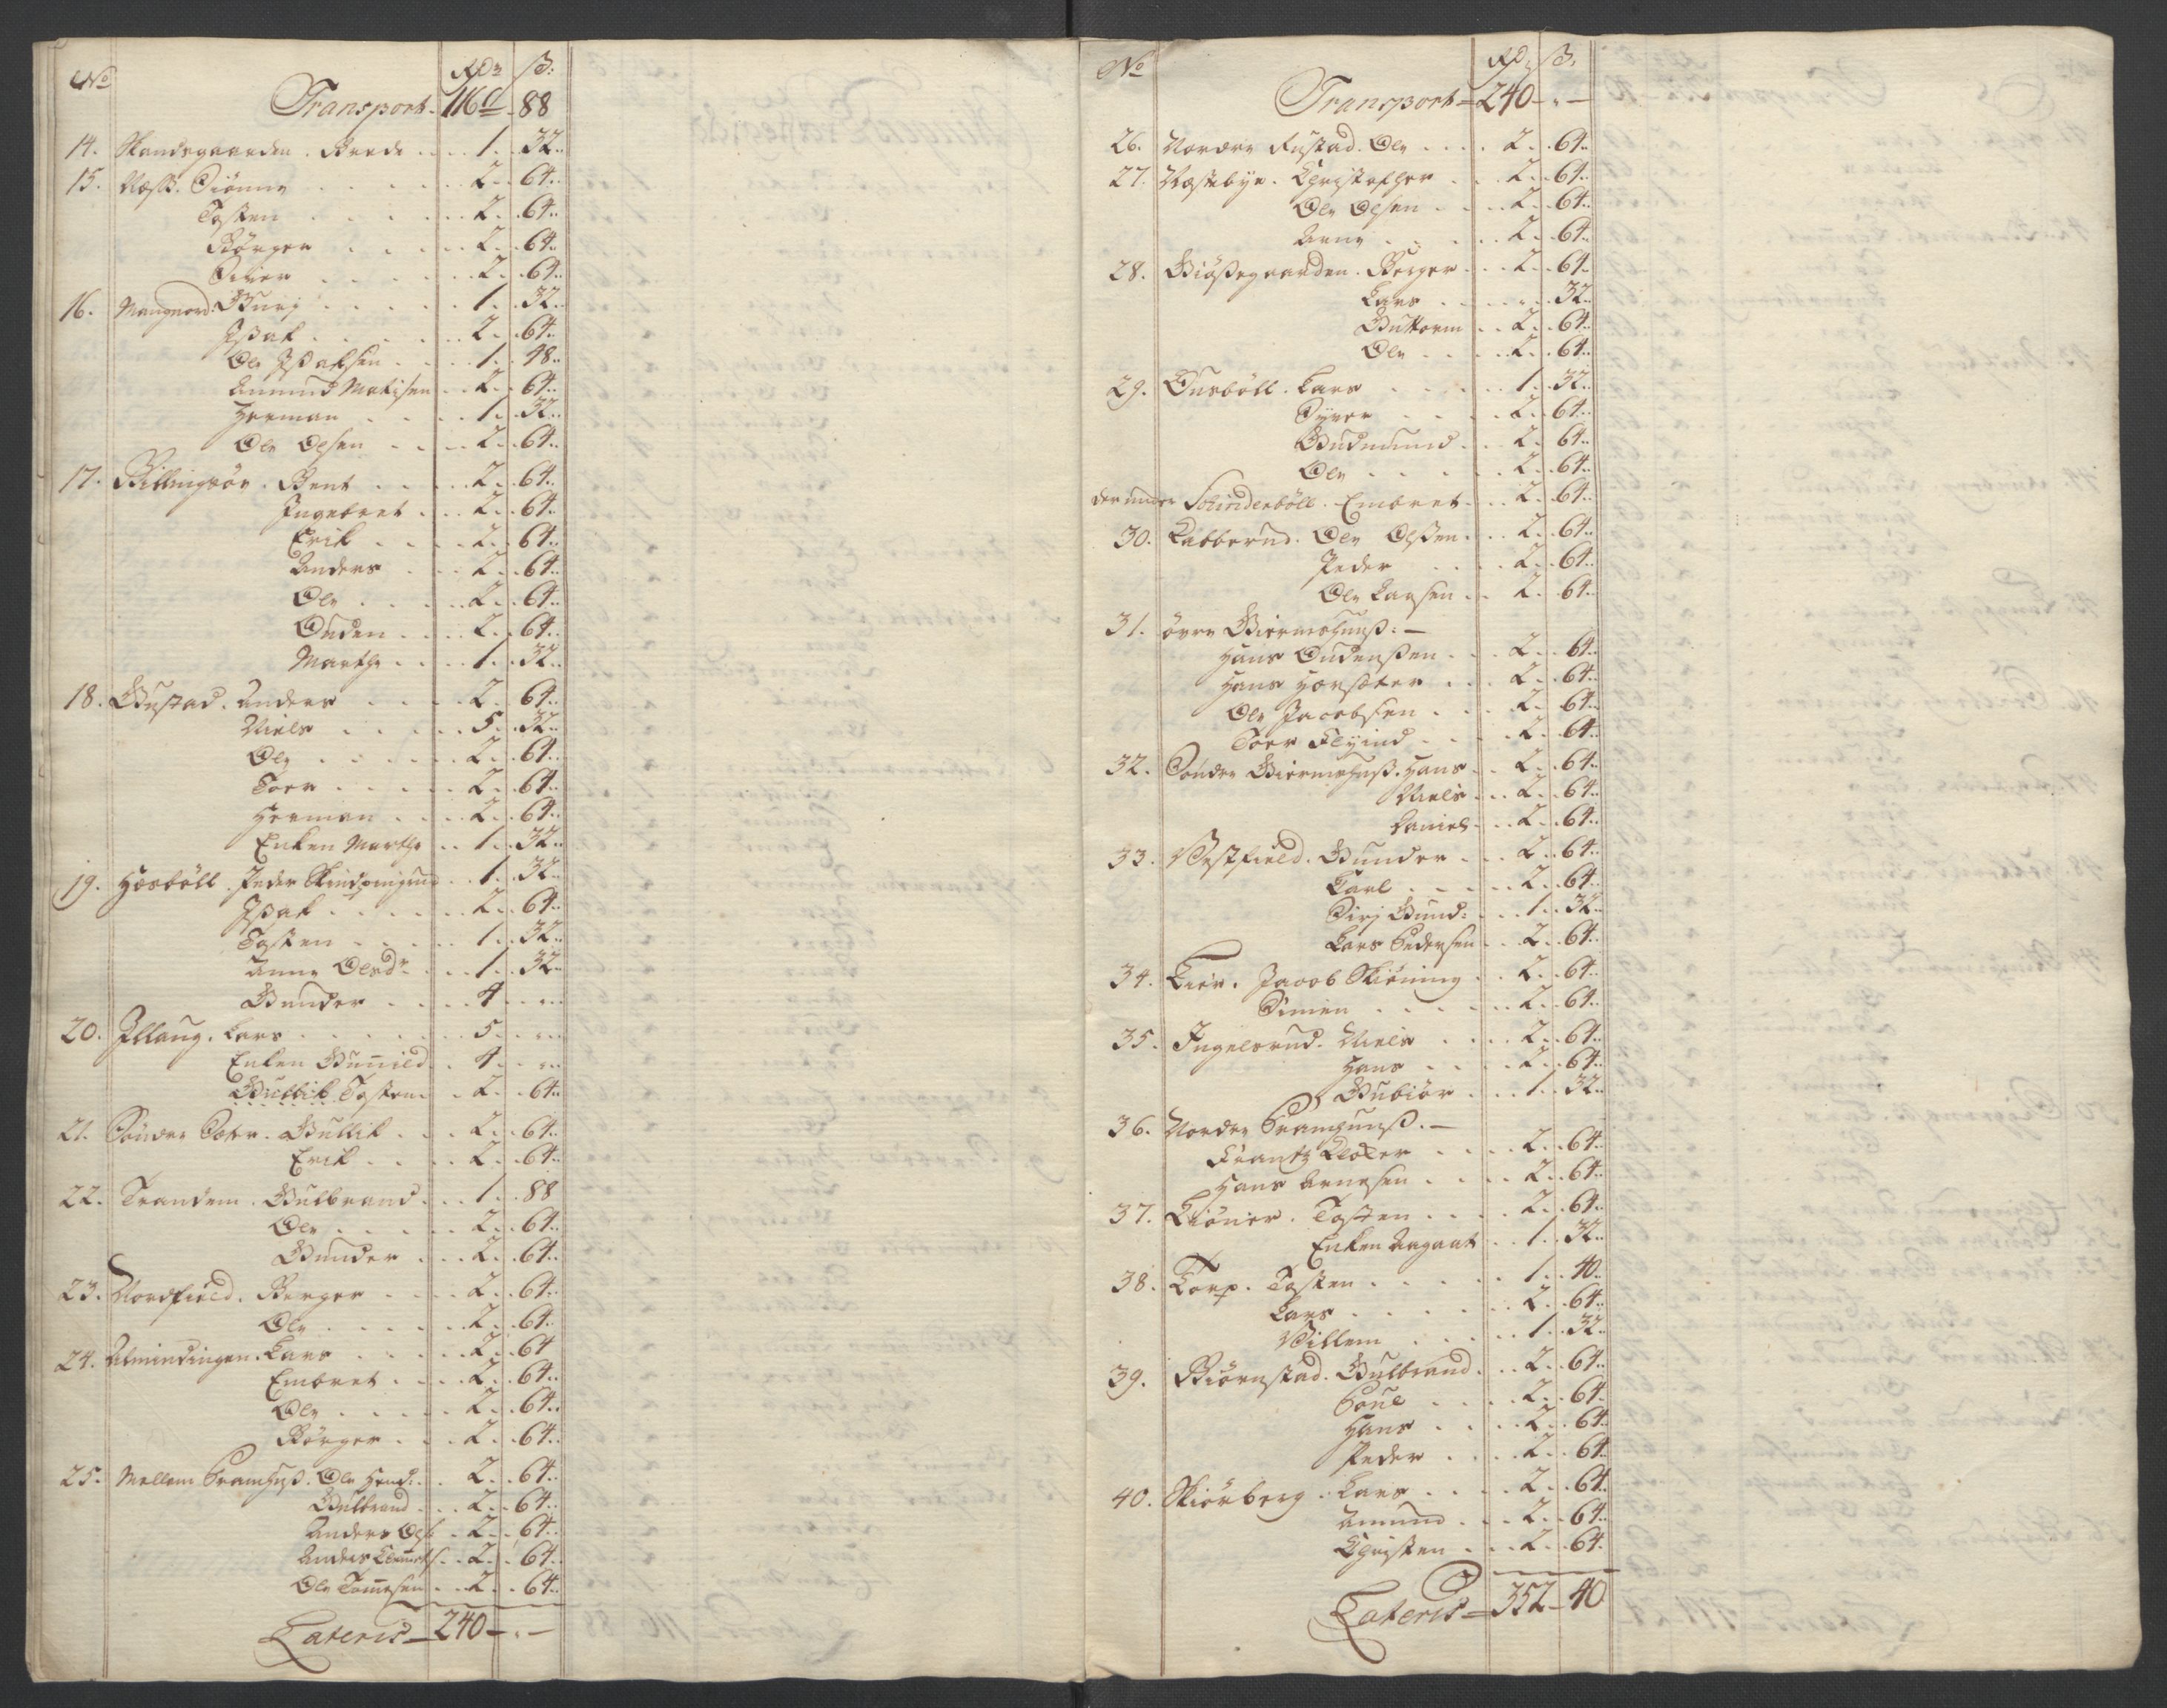 No Rdr ß:
Transport - 116 - 88
14. Skandsgaarden. Brede . . . 1. . 32..
15. Næss. Siønne . . . 2. . 64..
Tosten . . . 2. . 64..
Børger . . . 2. . 64..
Siver . . . 2. . 64..
16. Mangnord. Gurj . . . 1. . 32..
Jßak . . . 2. . 64..
Ole Jßaksen . . . 1. . 48..
Amund Matisen . . 2. . 64..
Herman . . . 1. . 32..
Ole Olsen . . . 2. . 64..
17. Billingsøe. Bent . . . 2. . 64..
Ingebret . . . 2. . 64..
Erik . . . 2. . 64..
Anders . . . 2. . 64..
Ole . . . 2. . 64..
Ouden . . . 2. . 64..
Marthe . . . 1. . 32..
18. Gustad. Anders . . . 2. . 64..
Niels . . . 5. . 32..
Ole . . . 2. . 64..
Tore . . . 2. . 64..
Herman . . . 2. . 64..
Enken Marthe . . 1. . 32..
19. Høsbøll. Peder . . 1. . 32..
Jßak . . . 2. . 64..
Tosten . . . 1. . 32..
Anne Olsdr . . . 1. . 32..
Gunder . . . 4. . ...
20. Illaug. Lars . . . 5. . ...
Enken Gunild . . 4. . ...
Gullik Tosten . . 2. . 64..
21. Søndre Sæter. Gullik . . . 2. . 64..
Erik . . . 2. . 64..
22. Trandem. Gulbrand . . . 1. . 88
Ole . . . 2. . 64..
Gunder . . . 2. . 64..
23. Nordfield. Berger . . . 2. . 64..
Ole . . . 2. . 64..
24. Almindingen. Lars . . . 2. . 64
Embret . . . 2. . 64..
Ole . . . 2. . 64..
Børger . . . 2. . 64..
25. Mellem Pramhuß. Ole Hend: . . 2. . 64..
Gulbrand . . . 2. . 64..
Anders Ols: . . 2. . 64..
Anders Clemets: . . 2. . 64..
Ole Tomesen . . 2. . 64..
Lateris - 240 - . -
No Rdr ß:
Transport - 240 - . -
26. Nordre Rustad. Ole . . . 2. . 64..
27. Næstebye. Christopher . . 2. . 64..
Ole Olsen . . . 2. . 64..
Arne . . . 2. . 64..
28. Giøßegaarden. Berger . . . 2. . 64..
Lars . . . . . 32..
Guttorm . . 2. . 64..
Ole . . . 2. . 64..
29. Ousbøll. Lars . . . 1. . 32..
Syver . . . 2. . 64..
Gudmund . . . 2. . 64..
Ole . . . 2. . 64..
der under Schinderbøll. Embret . . 2. . 64..
30. Labberud. Ole Olßen . . . 2. . 64..
Peder . . . 2. . 64..
Ole Larsen . . 2. . 64..
31. øvre Giermshuuß: -
Hans Oudenßen . . . 2. . 64
Hans Horsæter . . . 2. . 64..
Ole Jacobsen . . . 2. . 64..
Tore Eyind . . . 2. . 64..
32. Søndre Giermshuß. Hans . . 2. . 64..
Niels . . 2. . 64..
Daniel . . . 2. . 64..
33. Westfield. Gunder . . . 2. . 64..
Carl . . . 2. . 64..
Sirj Gund: . . . 1. . 32..
Lars Pedersen . . 2. . 64..
34. Lier. Jacob Skiøning . . 2. . 64..
Simen . . . 2. . 64..
35. Ingelsrud. Niels . . . 2. . 64..
Hans . . . 2. . 64..
Gubiør . . . 1. . 32..
36. Nordre Pramhuuß. -
Frantz . . . 2. . 64..
Hans Arnesen . . . 2. . 64..
37. Kiøner. Tosten . . . 2. . 64..
Enken Aagaat . . 1. . 32..
38. Torp. Tosten . . . 1. . 40..
Lars . . . 2. . 64..
Willem . . . 1. . 32..
39. Biørnstad. Gulbrand . . . 2. . 64..
Poul . . . 2. . 64.
Hans . . . 2. . 64.
Peder . . . 2. . 64.
40. Skiørberg. Lars . . . 2. . 64.
Amund . . . 2. . 64..
Christen . . . 2. . 64.
Lateris - 352 - 40